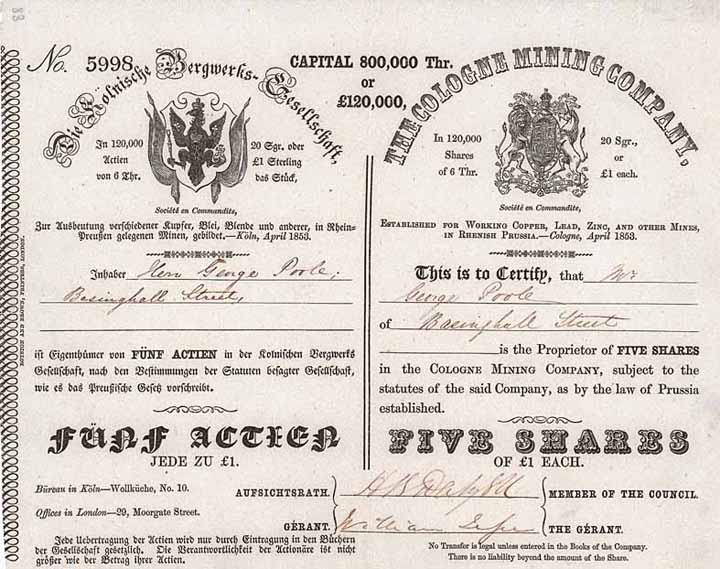 No. 5998
CAPITAL 800,000 Thr.
or
£120,000,
Die Kölnische Bergwerks-Gesellschaft,
In 120,000
Actien
von 6 Thr.
20 Sgr. oder
£1 Sterling
das Stück,
Société en Commandite,
Zur Ausbeutung verschiedener Kupfer, Blei, Blende und anderer, in Rhein-
Preußen gelegenen Minen, gebildet.—Köln, April 1853.
Inhaber Herr George Poole,
Basinghall Street,
ist Eigenthümer von FÜNF ACTIEN in der Kolnischen Bergwerks
Gesellschaft, nach den Bestimmungen der Statuten besagter Gesellschaft,
wie es das Preußische Gesetz vorschreibt.
FÜNF ACTIEN
JEDE ZU £1.
THE COLOGNE MINING COMPANY,
In 120,000
Shares
of 6 Thr.
20 Sgr.,
or
£1 each.
Société en Commandite,
ESTABLISHED FOR WORKING COPPER, LEAD, ZINC, AND OTHER MINES,
IN RHENISH PRUSSIA.—Cologne, April 1853.
This is to Certify, that Mr
George Poole
of Basinghall Street
is the Proprietor of FIVE SHARES
in the COLOGNE MINING COMPANY, subject to the
statutes of the said Company, as by the law of Prussia
established.
FIVE SHARES
OF £1 EACH.
Büreau in Köln—Wollküche, No. 10.
Offices in London—29, Moorgate Street.
AUFSICHTSRATH.
MEMBER OF THE COUNCIL.
GÉRANT.
William
THE GÉRANT.
Jede Uebertragung der Actien wird nur durch Eintragung in den Büchern
der Gesellschaft gesetzlich. Die Verantwortlichkeit der Actionäre ist nicht
größer wie der Betrag ihrer Actien.
No Transfer is legal unless entered in the Books of the Company.
There is no liability beyond the amount of the Share.
AND BROWN, PRINTERS, LONDON.